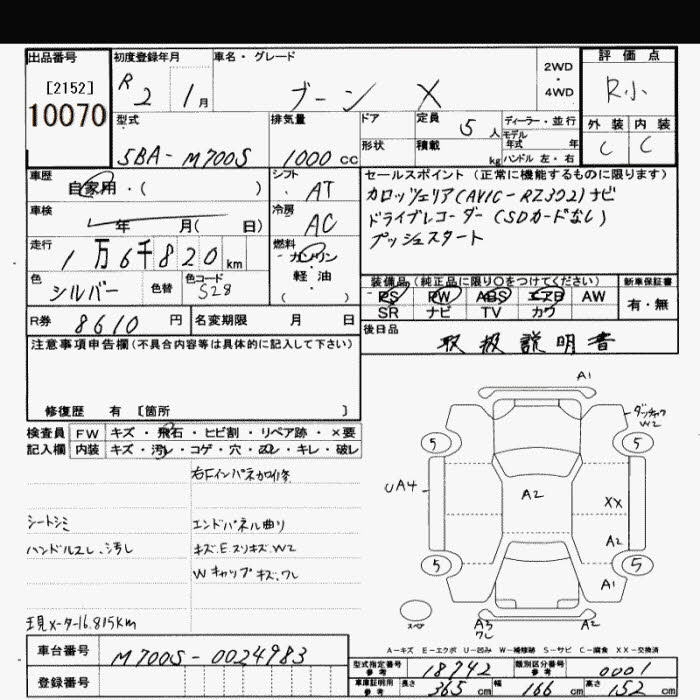 出品番号
[2152]
10070
初度登録年月
R 2 1月
車名・グレード
ブーン X
2WD
・
4WD
評価点
R小
外装 内装
C C
型式
5BA-M700S
排気量
1000 cc
ドア
形状
定員
5人
積載
kg
ディーラー・並行
モデル
年式 年
ハンドル 左・右
車歴
自家用・( )
シフト
AT
車検
年 月( 日)
冷房
AC
走行
1万6千820km
燃料
ガソリン
軽・油
( )
色
シルバー
色替
色コード
S28
R券 8610 円
名変期限 月 日
セールスポイント(正常に機能するものに限ります)
カロッツェリア(AVIC-RZ302)ナビ
ドライブレコーダー(SDカードなし)
プッシュスタート
装備品(純正品に限り○をつけてください)
PS PW ABS エアB AW
SR ナビ TV カワ
新車保証書
有・無
後日品
取扱説明書
注意事項申告欄(不具合内容等は具体的に記入して下さい)
修復歴 有 [箇所 ]
検査員
記入欄
FW キズ・飛石・ヒビ割・リペア跡・×要
内装 キズ・汚レ・コゲ・穴・凹・キレ・破レ
右Fインパネ加修
シートシミ
エンドパネル曲り
ハンドルスレ、汚レ
キズ.E.スリキズ.W2
Wキャップキズ.ワレ
現メーター16.815km
A1
ダッチャク
W2
5 5
UA4
A2
XX
A2
5 5
A1
スペア
A3
ワレ
A2
A-キズ E-エクボ U-凹み W-補修跡 S-サビ C-腐食 XX-交換済
車台番号
M700S-0024983
登録番号
型式指定番号
参考
18742
類別区分番号
参考
0001
車庫証明用
参考
長さ 365 cm 幅 166 cm 高さ 152 cm